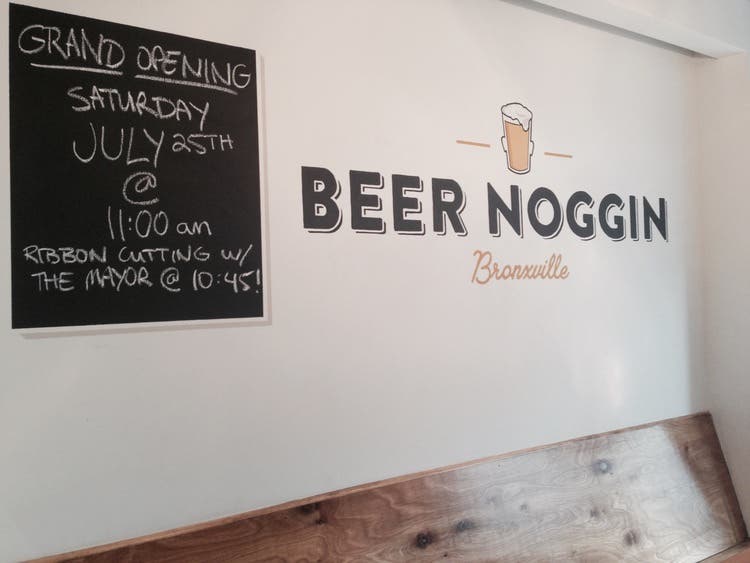 GRAND OPENING
SATURDAY
JULY 25TH
@
11:00 am
RIBBON CUTTING W/
THE MAYOR @ 10:45!
BEER NOGGIN
Bronxville